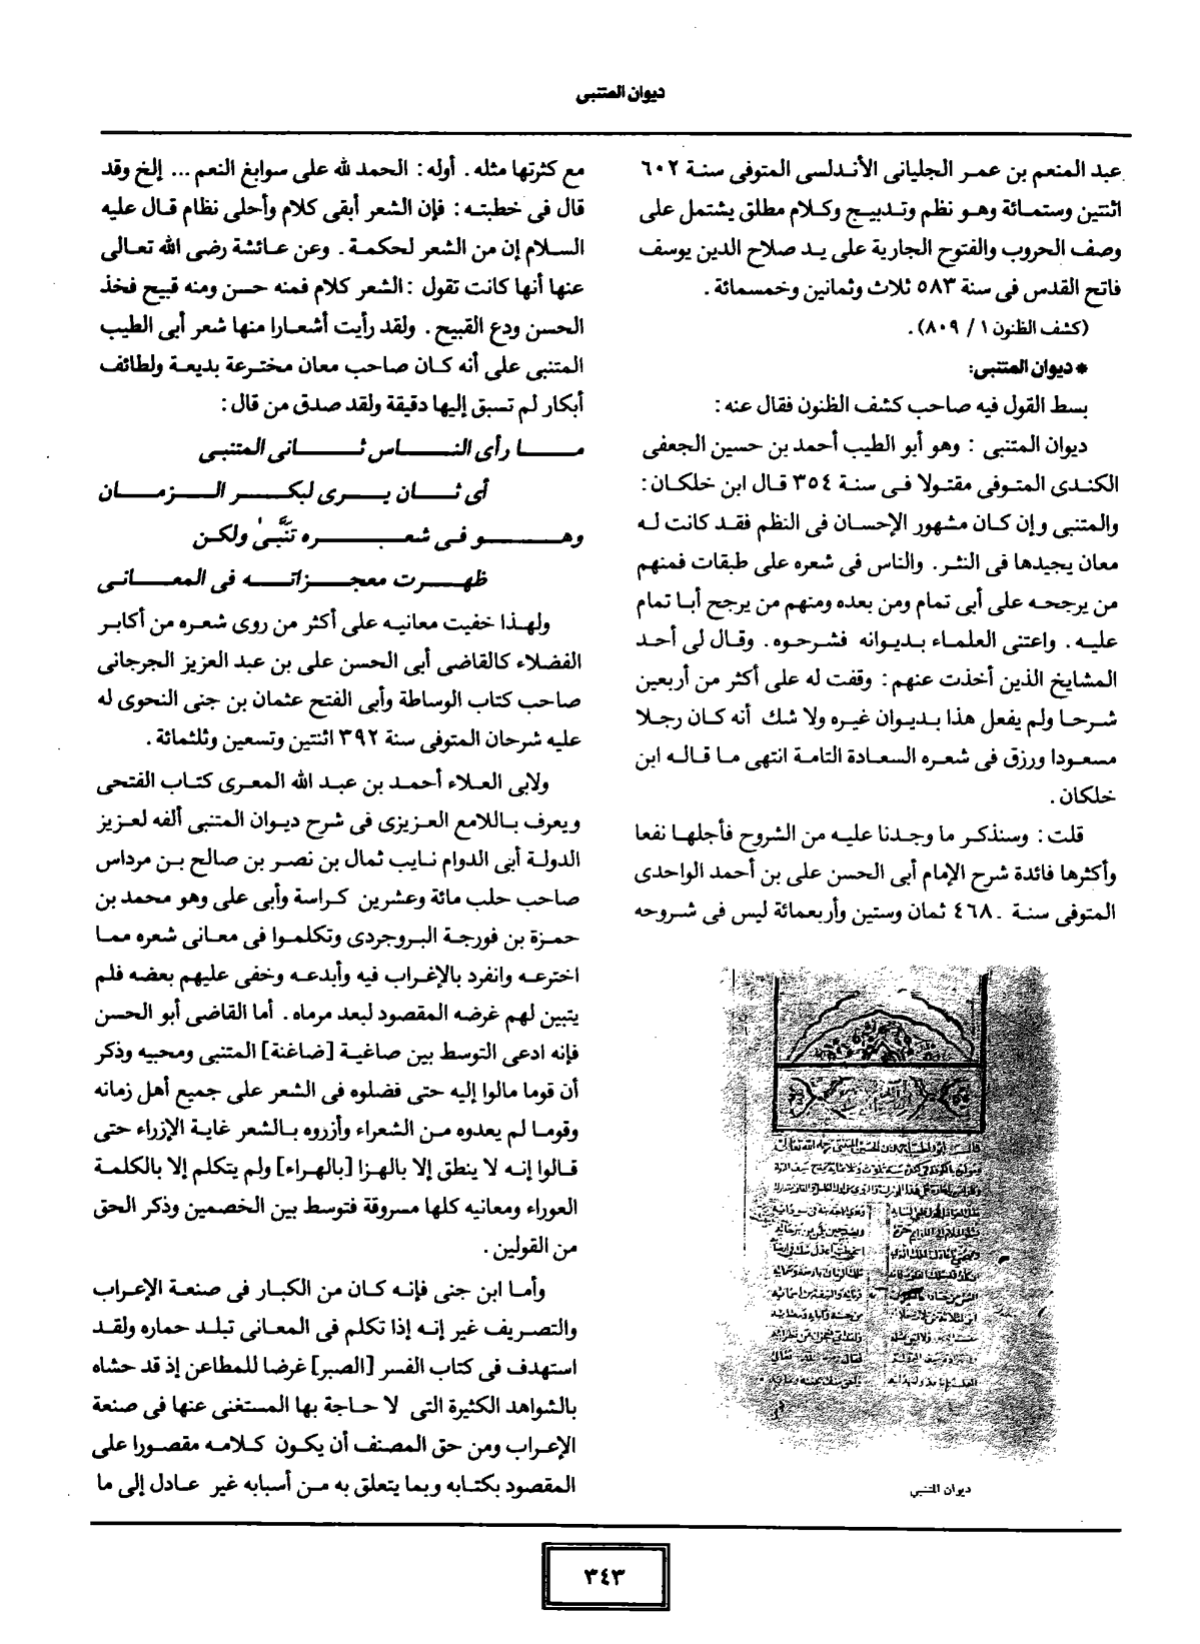 ديوان المتنبى
عبد المنعم بن عمر الجليانى الأندلسى المتوفى سنة ٦٠٢
اثنتين وستمائة وهو نظم وتدبيج وكلام مطلق يشتمل على
وصف الحروب والفتوح الجارية على يد صلاح الدين يوسف
فاتح القدس فى سنة ٥٨٣ ثلاث وثمانين وخمسمائة .
(كشف الظنون ١ / ٨٠٩) .
* ديوان المتنبى:
بسط القول فيه صاحب كشف الظنون فقال عنه :
ديوان المتنبى : وهو أبو الطيب أحمد بن حسين الجعفى
الكندى المتوفى مقتولا فى سنة ٣٥٤ قال ابن خلكان :
والمتنبى وإن كان مشهور الإحسان فى النظم فقد كانت له
معان يجيدها فى النثر . والناس فى شعره على طبقات فمنهم
من يرجحه على أبى تمام ومن بعده ومنهم من يرجح أبا تمام
عليه . واعتنى العلماء بديوانه فشرحوه . وقال لى أحد
المشايخ الذين أخذت عنهم : وقفت له على أكثر من أربعين
شرحا ولم يفعل هذا بديوان غيره ولا شك أنه كان رجلا
مسعودا ورزق فى شعره السعادة التامة انتهى ما قاله ابن
خلكان .
قلت : وسنذكر ما وجدنا عليه من الشروح فأجلها نفعا
وأكثرها فائدة شرح الإمام أبى الحسن على بن أحمد الواحدى
المتوفى سنة ٤٦٨ ثمان وستين وأربعمائة ليس فى شروحه
ديوان المتنبي
مع كثرتها مثله . أوله : الحمد لله على سوابغ النعم ... إلخ وقد
قال فى خطبته : فإن الشعر أبقى كلام وأحلى نظام قال عليه
السلام إن من الشعر لحكمة . وعن عائشة رضى الله تعالى
عنها أنها كانت تقول : الشعر كلام فمنه حسن ومنه قبيح فخذ
الحسن ودع القبيح . ولقد رأيت أشعارا منها شعر أبى الطيب
المتنبى على أنه كان صاحب معان مخترعة بديعة ولطائف
أبكار لم تسبق إليها دقيقة ولقد صدق من قال :
ما رأى الناس ثانى المتنبى
أى ثان يرى لبكر الزمان
وهو فى شعره تنَبَّى ولكن
ظهرت معجزاته فى المعانى
ولهذا خفيت معانيه على أكثر من روى شعره من أكابر
الفضلاء كالقاضى أبى الحسن على بن عبد العزيز الجرجانى
صاحب كتاب الوساطة وأبى الفتح عثمان بن جنى النحوى له
عليه شرحان المتوفى سنة ٣٩٢ اثنتين وتسعين وثلثمائة .
ولابى العلاء أحمد بن عبد الله المعرى كتاب الفتحى
ويعرف باللامع العزيزى فى شرح ديوان المتنبى ألفه لعزيز
الدولة أبى الدوام نايب ثمال بن نصر بن صالح بن مرداس
صاحب حلب مائة وعشرين كراسة وأبى على وهو محمد بن
حمزة بن فورجة البروجردى وتكلموا فى معانى شعره مما
اخترعه وانفرد بالإغراب فيه وأبدعه وخفى عليهم بعضه فلم
يتبين لهم غرضه المقصود لبعد مرماه . أما القاضى أبو الحسن
فإنه ادعى التوسط بين صاغية [ضاغنة] المتنبى ومحبيه وذكر
أن قوما مالوا إليه حتى فضلوه فى الشعر على جميع أهل زمانه
وقوما لم يعدوه من الشعراء وأزروه بالشعر غاية الإزراء حتى
قالوا إنه لا ينطق إلا بالهزا [بالهراء] ولم يتكلم إلا بالكلمة
العوراء ومعانيه كلها مسروقة فتوسط بين الخصمين وذكر الحق
من القولين .
وأما ابن جنى فإنه كان من الكبار فى صنعة الإعراب
والتصريف غير إنه إذا تكلم فى المعانى تبلد حماره ولقد
استهدف فى كتاب الفسر [الصبر] غرضا للمطاعن إذ قد حشاه
بالشواهد الكثيرة التى لا حاجة بها المستغنى عنها فى صنعة
الإعراب ومن حق المصنف أن يكون كلامه مقصورا على
المقصود بكتابه وبما يتعلق به من أسبابه غير عادل إلى ما
٣٤٣